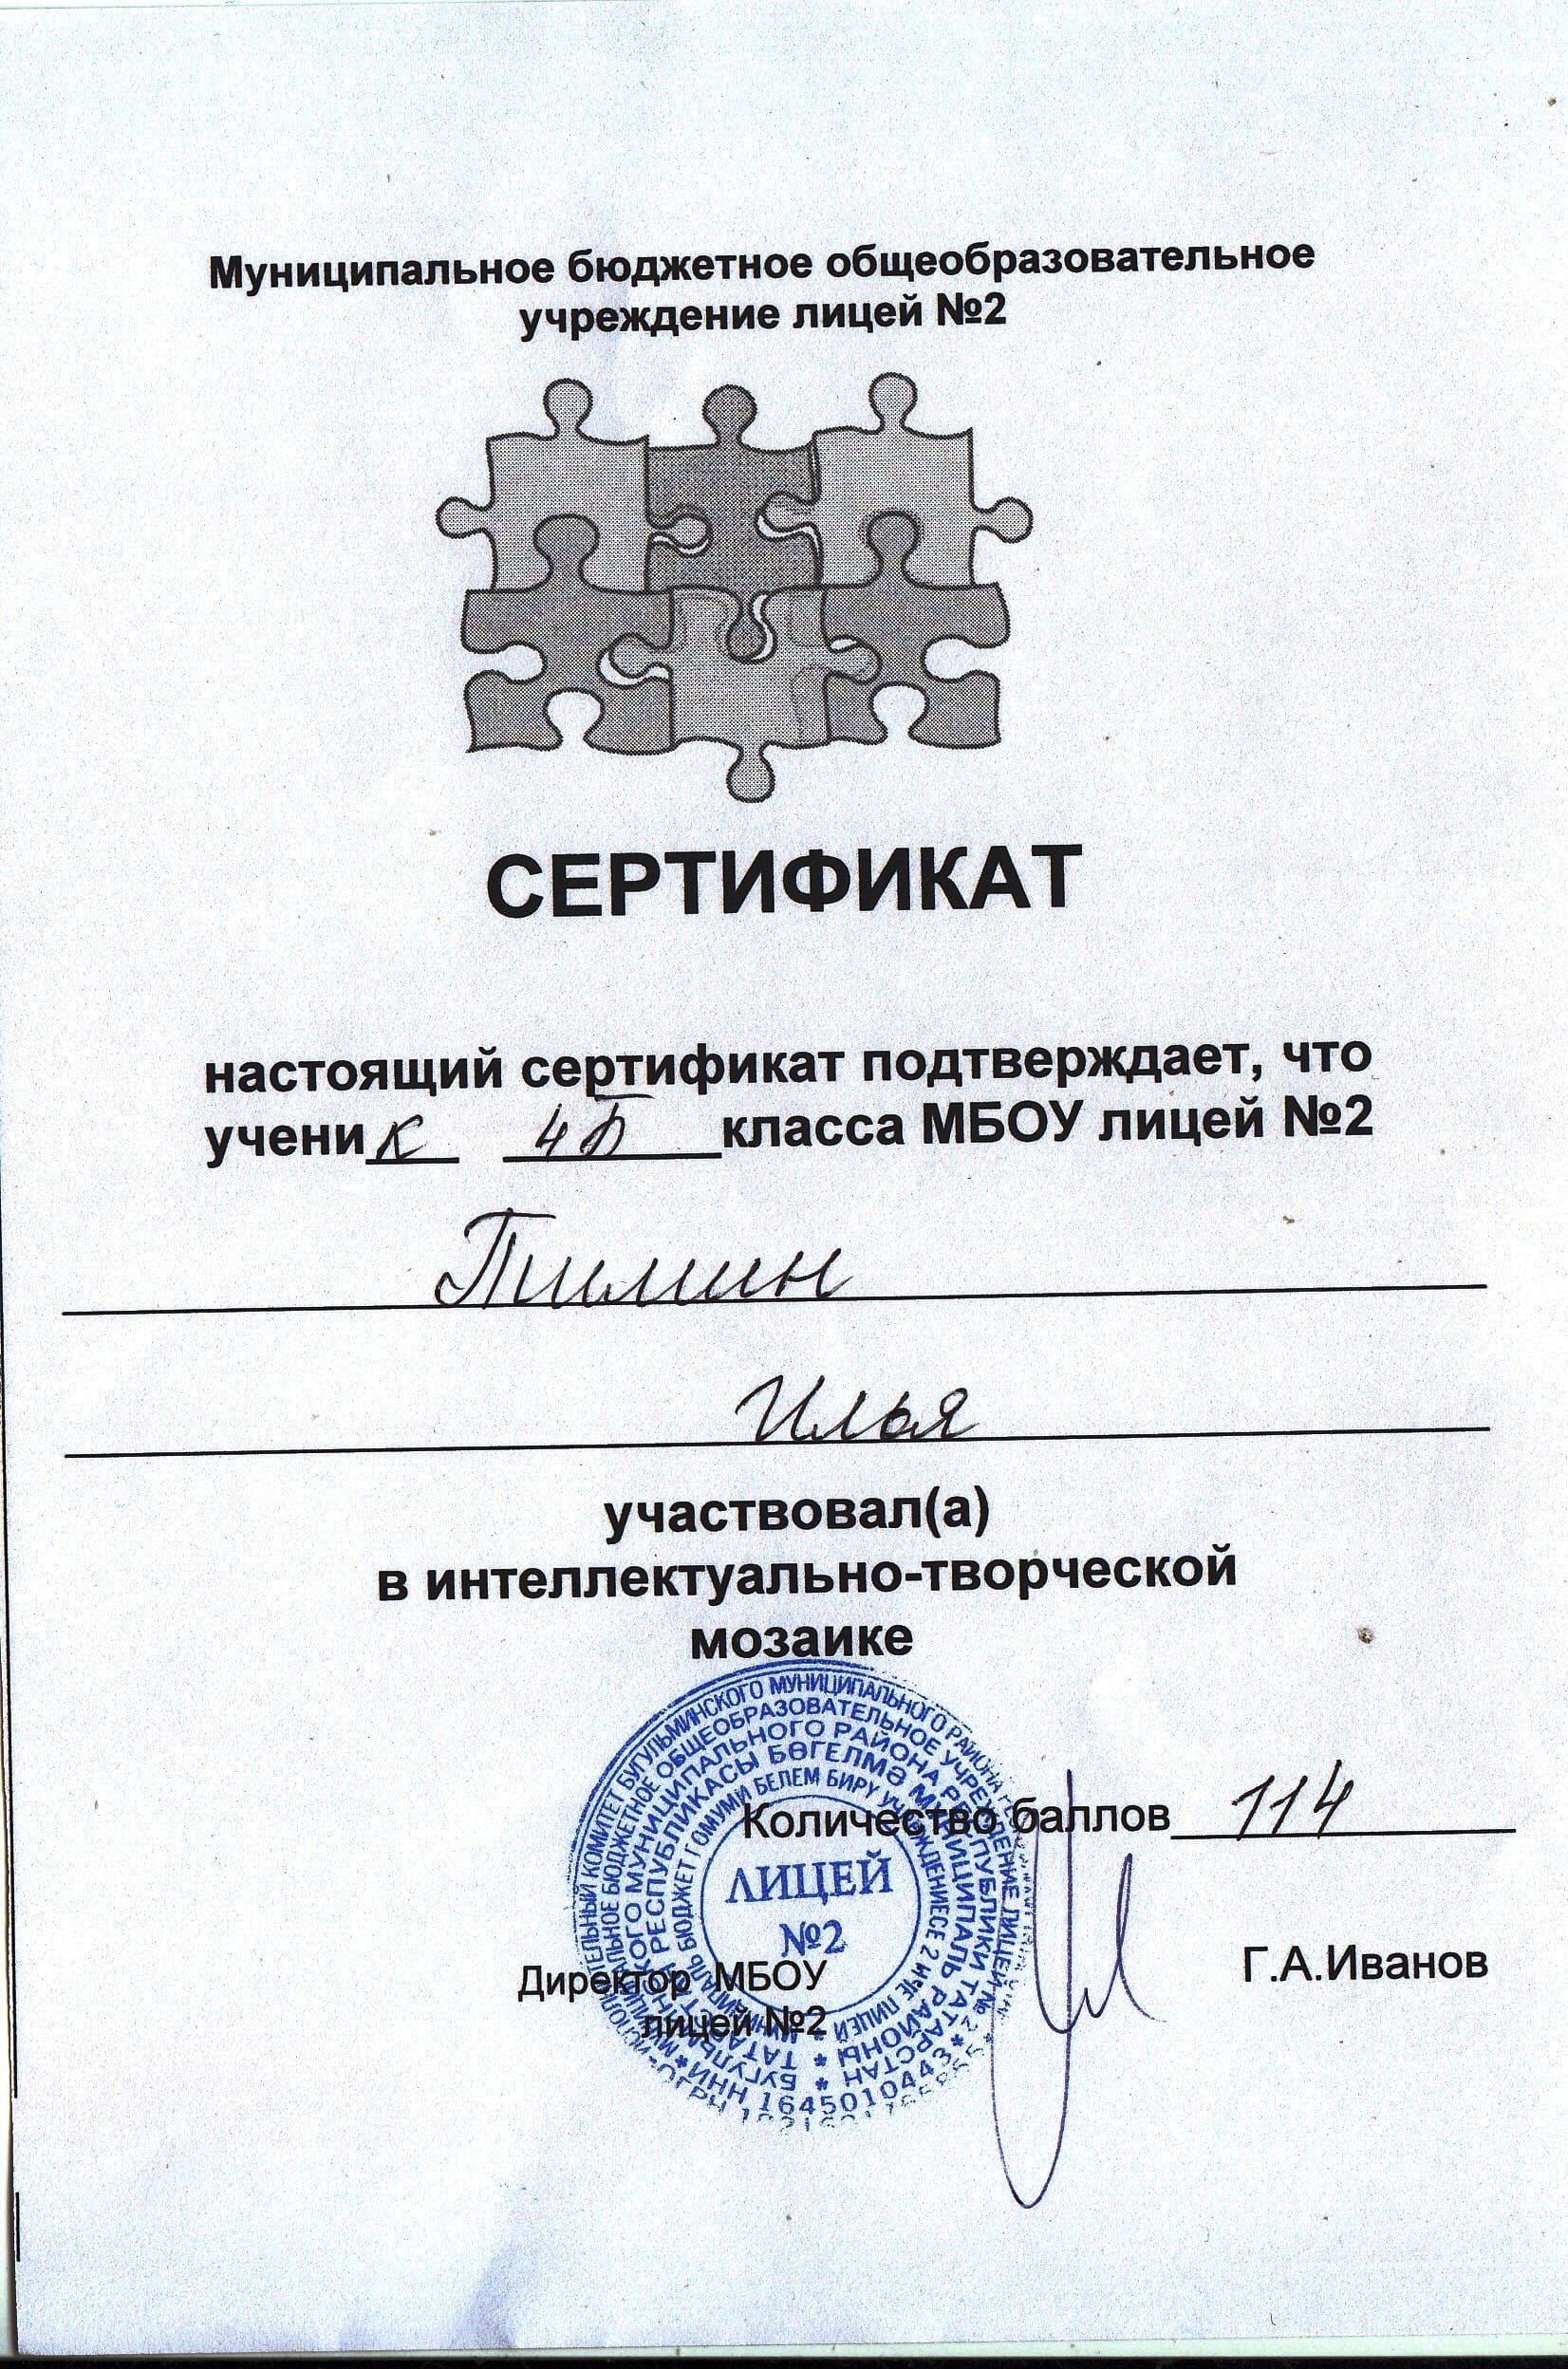 Муниципальное бюджетное общеобразовательное
учреждение лицей №2
СЕРТИФИКАТ
настоящий сертификат подтверждает, что
ученик 4Б класса МБОУ лицей №2
Тимин
Илья
участвовал(а)
в интеллектуально-творческой
мозаике
Количество баллов 114
ЛИЦЕЙ
№2
Директор МБОУ
лицей №2
Г.А.Иванов
КОМИТЕТ БУГУЛЬМИНСКОГО МУНИЦИПАЛЬНОГО РАЙОНА
БЮДЖЕТНОЕ ОБЩЕОБРАЗОВАТЕЛЬНОЕ УЧРЕЖДЕНИЕ ЛИЦЕЙ №2
МУНИЦИПАЛЬНОГО РАЙОНА РЕСПУБЛИКИ ТАТАРСТАН
РЕСПУБЛИКАСЫ БӨГЕЛМӘ МУНИЦИПАЛЬ РАЙОНЫ
БЮДЖЕТ ГОМУМИ БЕЛЕМ БИРҮ УЧРЕЖДЕНИЕСЕ 2 НЧЕ ЛИЦЕЙ
ИНН 1645010443